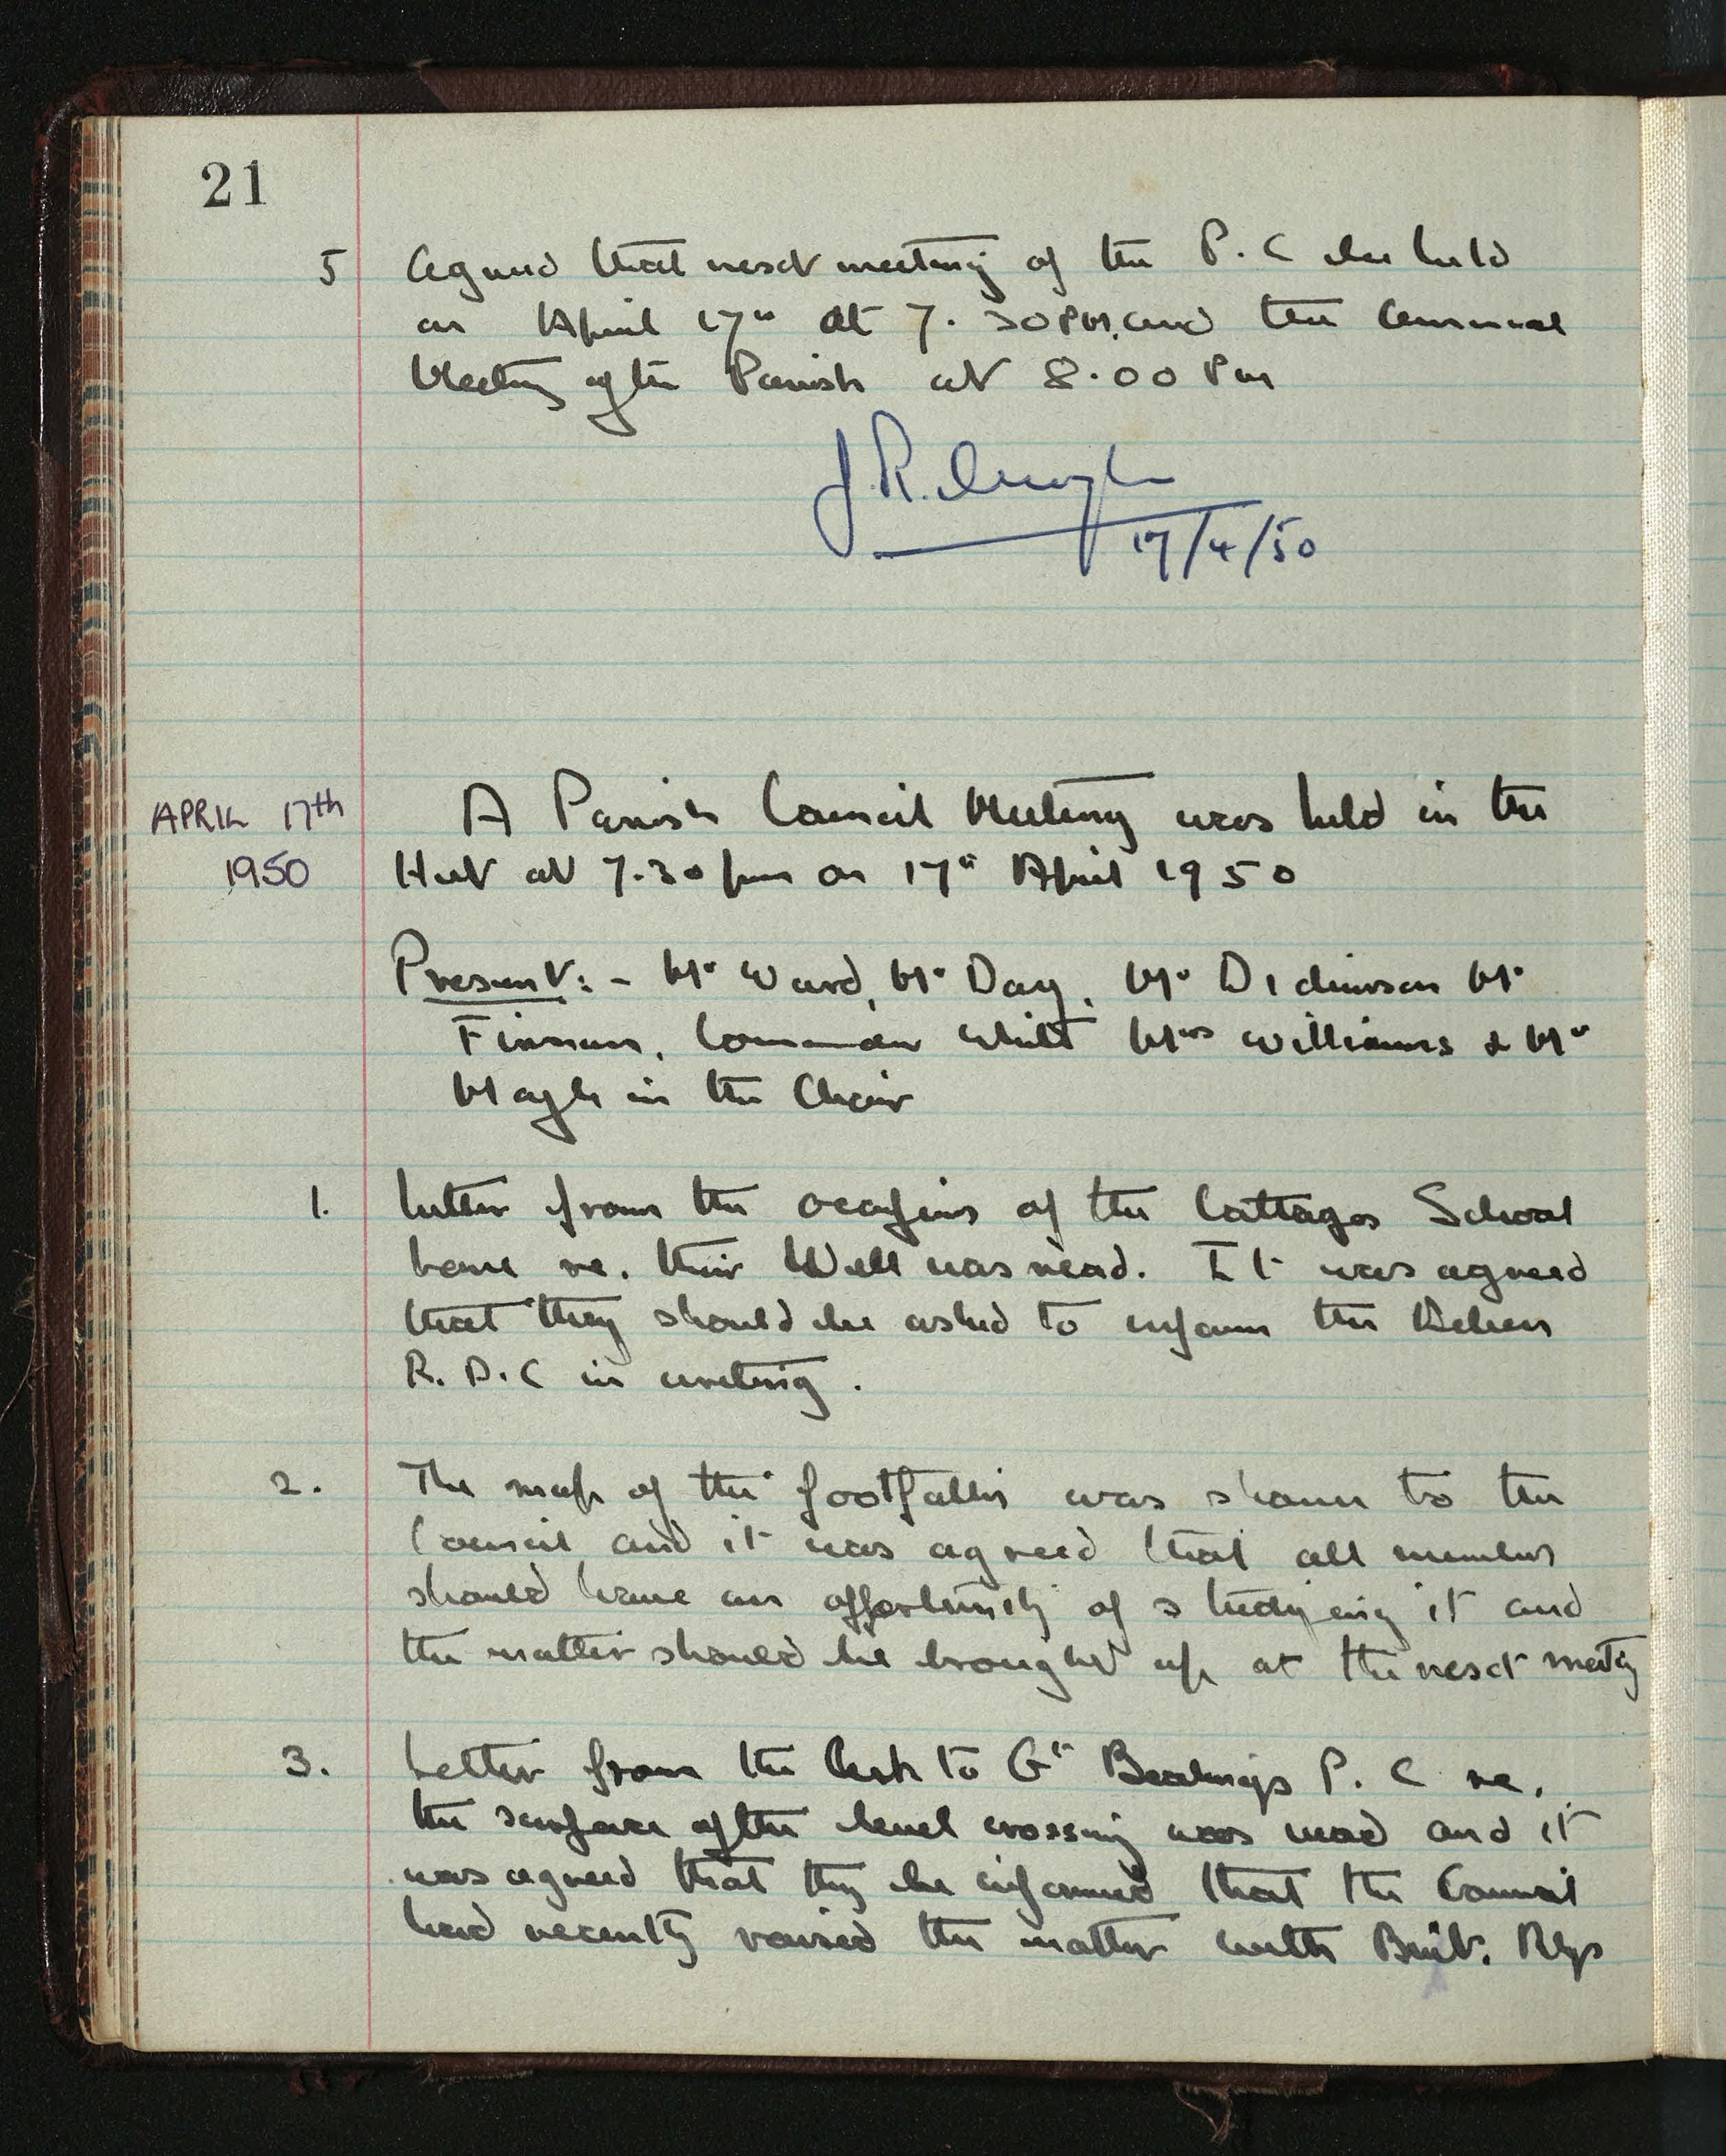 21
5 Agreed that next meeting of the P.C be held
on April 17th at 7.30PM. and the Annual
Meeting of the Parish at 8.00 Pm
J.R.
17/4/50
APRIL 17th
1950
A Parish Council Meeting was held in the
Hut at 7.30 pm on 17th April 1950
Present:- Mr Ward, Mr Day, Mr Dickinson Mr
Commander White Mrs Williams & Mr
in the Chair
1. Letter from the occupiers of the Cottages School
Lane re. their Well was read. It was agreed
that they should be asked to inform the Deben
R.D.C in writing.
2. The map of the footpaths was shown to the
Council and it was agreed that all members
should have an opportunity of studying it and
the matter should be brought up at the next meeting
3. Letter from the Clerk to Gt Bealings P.C re.
the surface of the level crossing was read and it
was agreed that they be informed that the Council
had recently raised the matter with Brit. Rlys